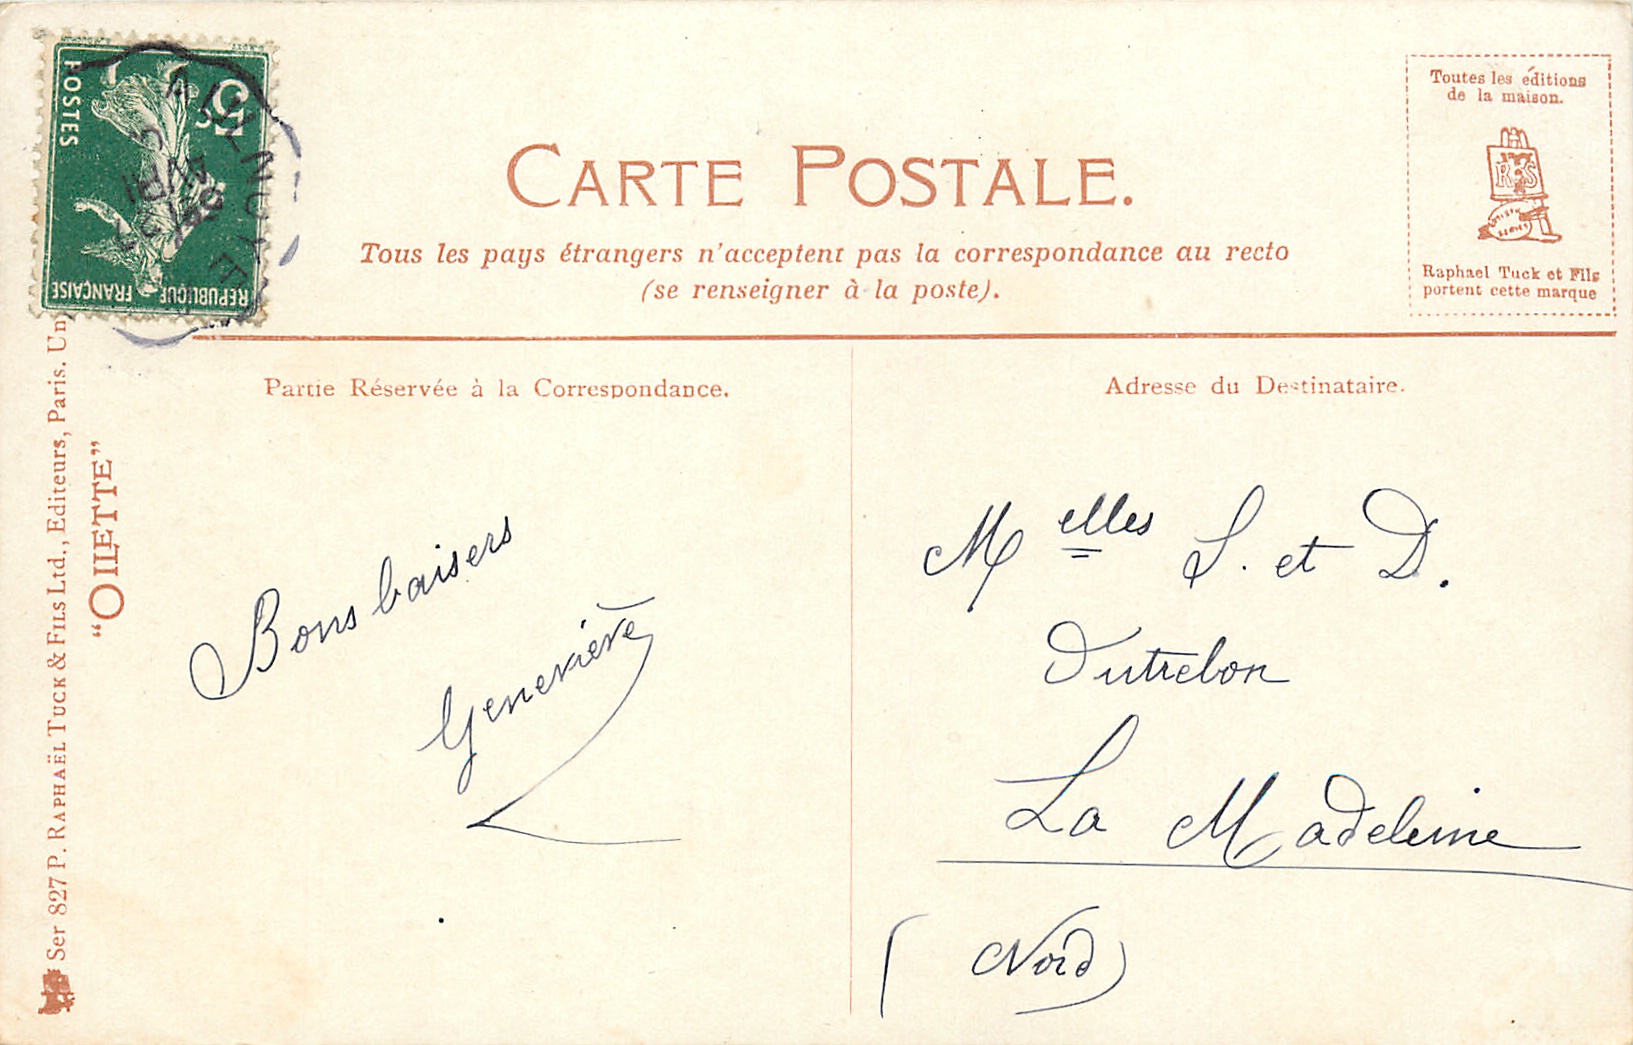 POSTES
5c
REPUBLIQUE FRANÇAISE
CARTE POSTALE.
Tous les pays étrangers n'acceptent pas la correspondance au recto
(se renseigner à la poste).
Toutes les éditions
de la maison.
Raphael Tuck et Fils
portent cette marque
Partie Réservée à la Correspondance.
Adresse du Destinataire.
Ser 827 P. RAPHAËL TUCK & FILS Ltd., Editeurs, Paris. Un
"OILETTE"
Bons baisers
Geneviève
Melles S. et D.
Dutrebon
La Madeleine
(Nord)